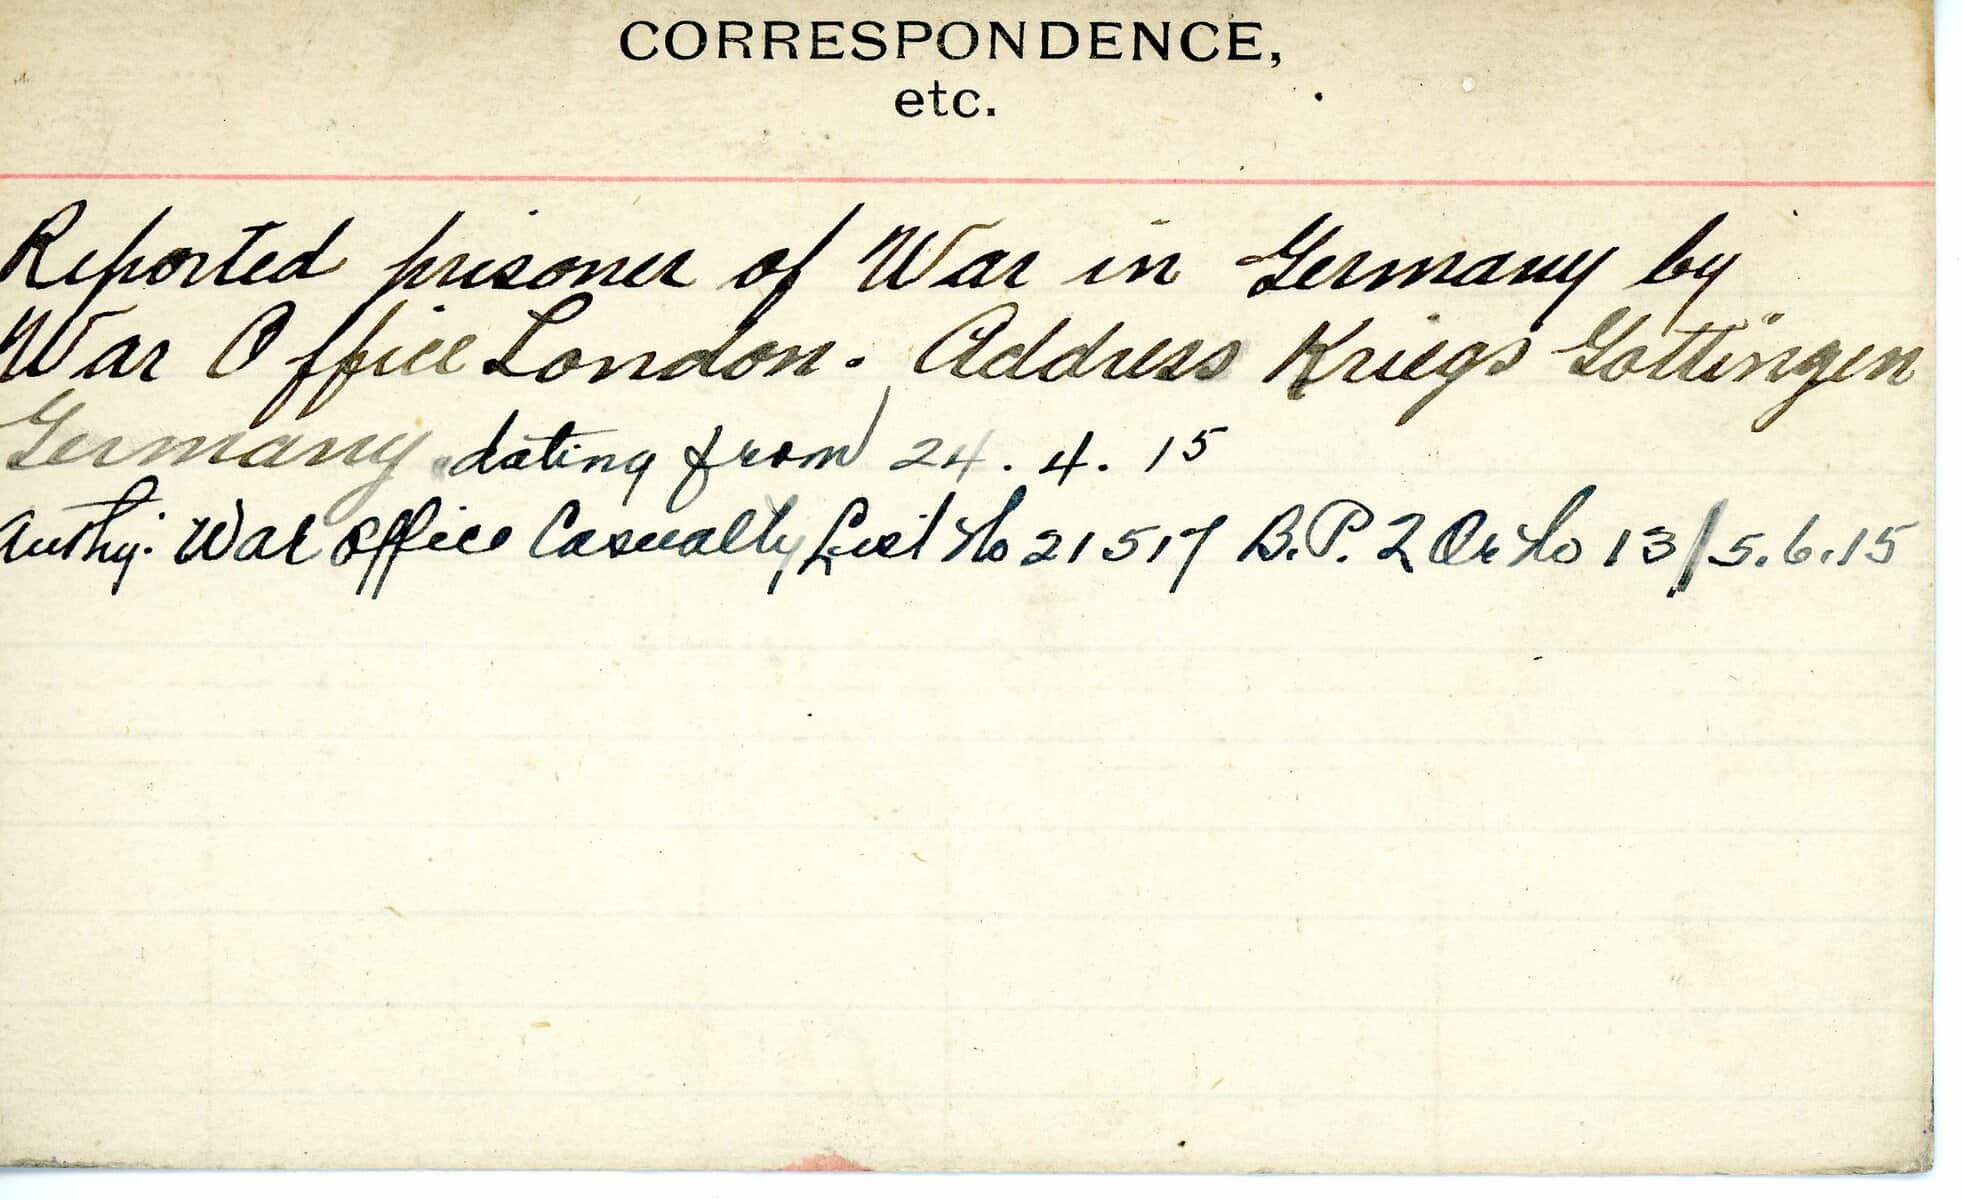 CORRESPONDENCE,
etc.
Reported prisoner of War in Germany by
War Office London. Address Kriegs Gottingen
Germany dating from 24.4.15
Authy. War Office Casualty List No 21517 B.P. 2 Or No 13/5.6.15